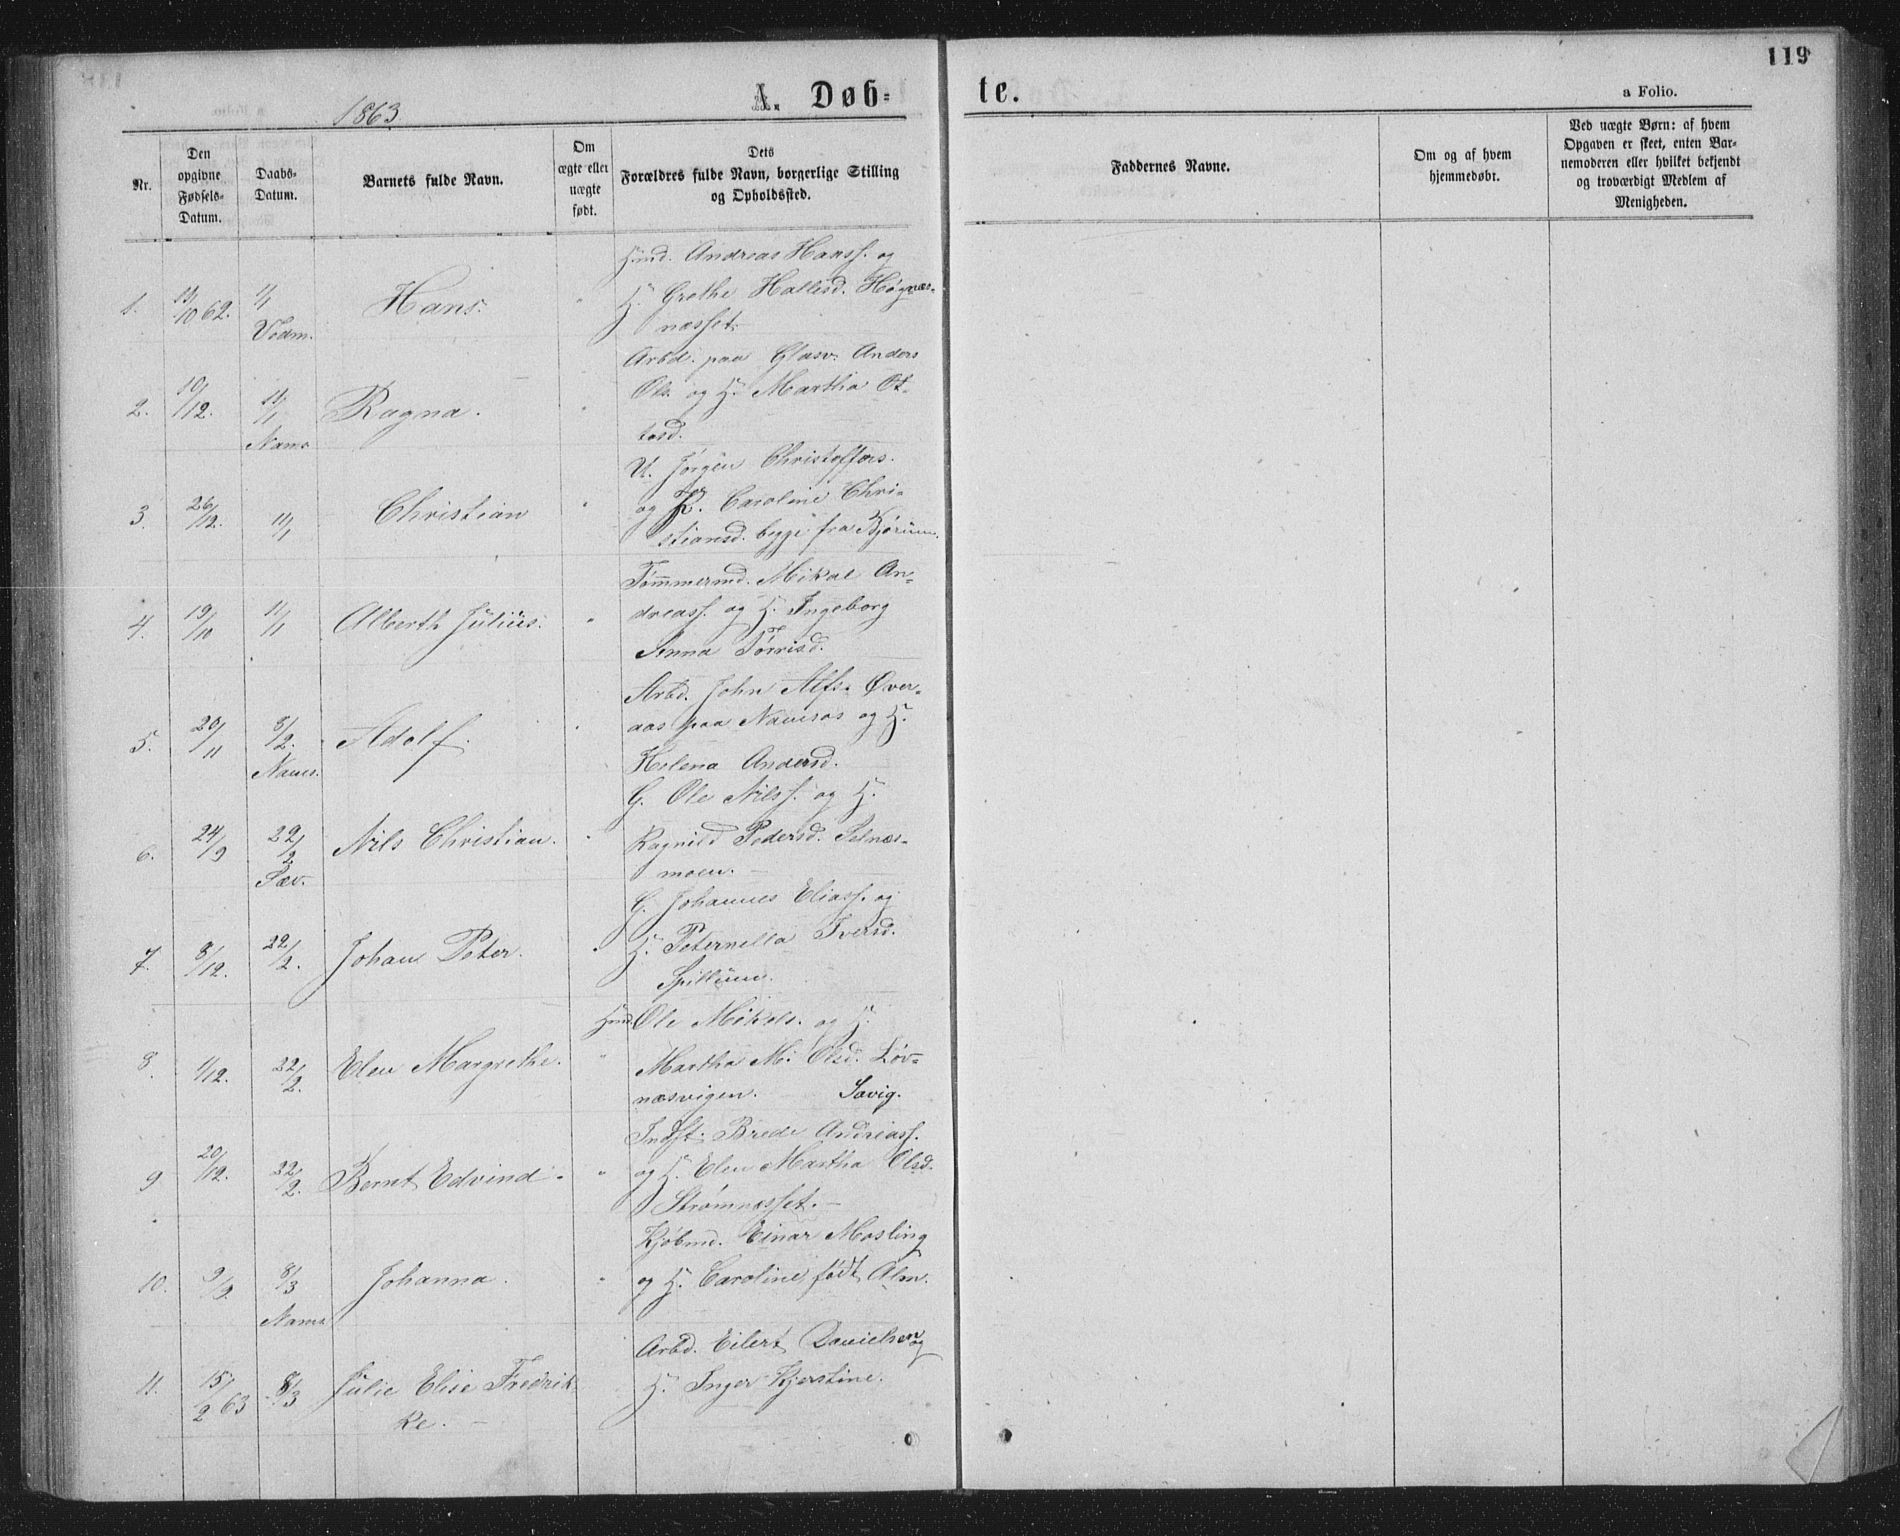 119
1863
A. Døb=
te.
a Folio.
Nr.
Den
opgivne
Fødsels-
Datum.
Daabs-
Datum.
Barnets fulde Navn.
Om
ægte eller
uægte
født.
Dets
Forældres fulde Navn, borgerlige Stilling
og Opholdssted.
Faddernes Navne.
Om og af hvem
hjemmedøbt.
Ved uægte Børn: af hvem
Opgaven er skeet, enten Bar-
nemoderen eller hvilket bekjendt
og troværdigt Medlem af
Menigheden.
Hmd. Andreas Hanss. og
1. 13/10 62. 1/1 Hans. " H. Grethe Hallesd. Høgnæs-
Vedm. næsset.
Arbd. paa Glasv. Anders
2. 10/12. 11/1 Ragna. " Ols. og H. Martha Ot-
Nams. tosd.
U. Jørgen Christoffers.
3. 26/12. 11/1 Christian " og P. Caroline Chri-
stiansd. begge fra Bjørum.
Tømmermd. Mikal An-
4. 19/10 11/1 Alberth Julius. " dreass. og H. Ingeborg
Anna Tørrisd.
Arbd. John Alfs. Øver-
5. 20/11 8/2. Adolf. " aas paa Namsos og H.
Nams. Helena Andersd.
G. Ole Nilss. og H.
6. 24/9 22/2 Nils Christian. " Ragnild Pedersd. Selnæs-
Sæv. moen.
G. Johannes Eliass. og
7. 8/12. 22/2. Johan Peter. " H. Peternella Iversd.
Spillum.
Hmd. Ole Mikals. og H.
8. 1/12. 22/2. Elen Margrethe. " Martha M. Olsd. Løv-
næsvigen. Sævig.
Indst. Brede Andreass.
9 20/12. 22/2. Bernt Edvind. " og H. Elen Martha Olsd.
Strømnæsset.
Kjøbmd. Einar Mosling
10. 9/9. 8/3 Johanna. " og H. Caroline født Alm.
Nams.
Arbd. Eilert Danielsen og
11. 15/2 63 8/3 Julie Elise Fredrik- H. Inger Kjerstine.
ke.